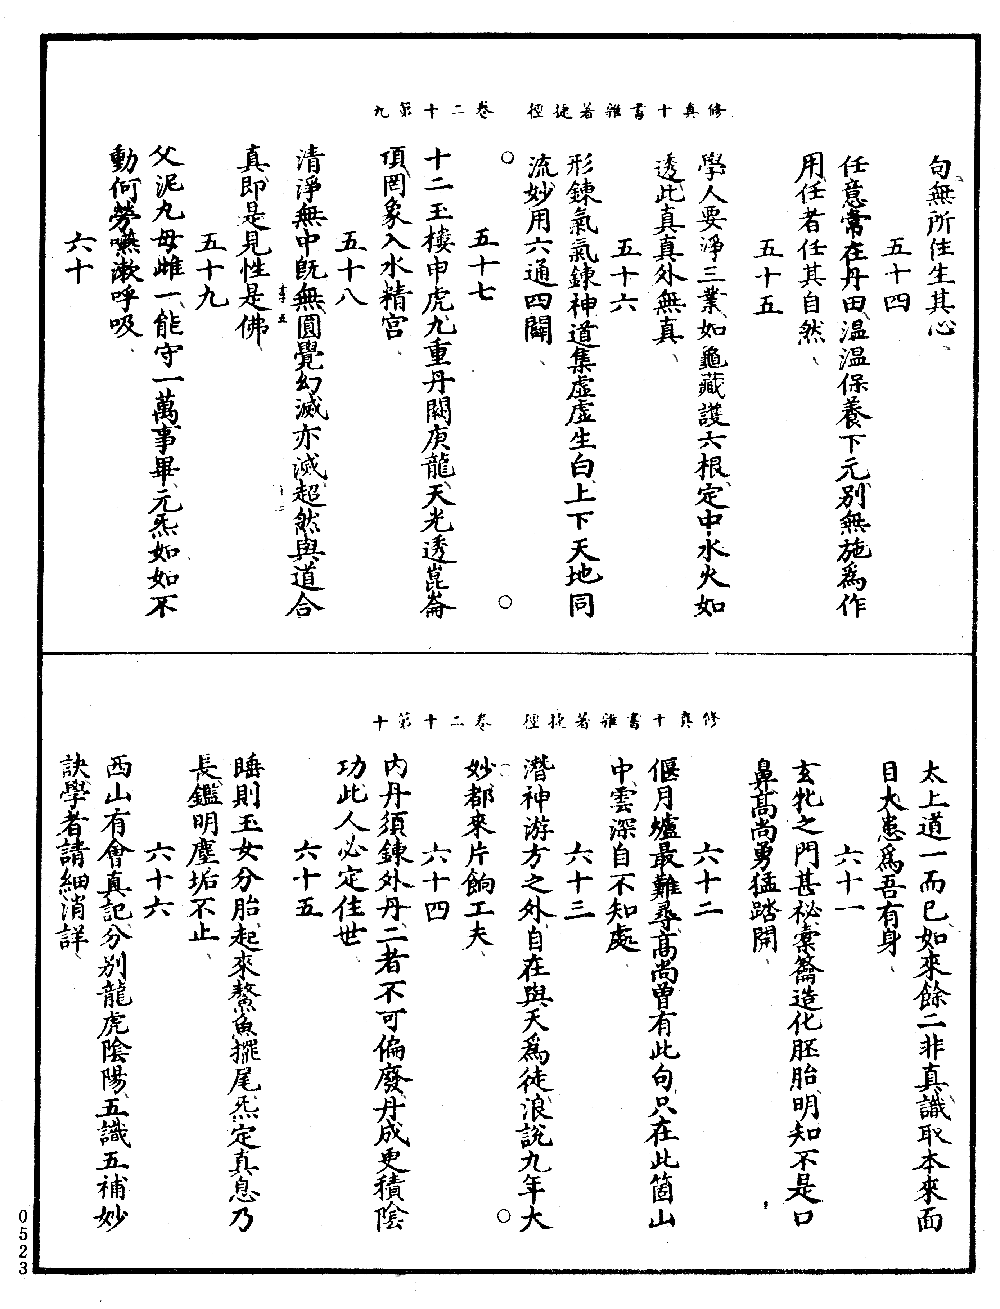 修真十書雜著捷徑　卷二十第九
句無所住生其心
五十四
任意常在丹田溫溫保養下元別無施爲作
用任者任其自然
五十五
學人要淨三業如龜藏護六根定中水火如
透此真真外無真
五十六
形鍊氣氣鍊神道集虛虛生白上下天地同
流妙用六通四闢
五十七
十二玉樓申虎九重丹闕庚龍天光透崑崙
頂罔象入水精宮
五十八
清淨無中旣無圓覺幻滅亦滅超然與道合
真即是見性是佛
五十九
父泥丸母雌一能守一萬事畢元炁如如不
動何勞嚥漱呼吸
六十
修真十書雜著捷徑　卷二十第十
太上道一而已如來餘二非真識取本來面
目大患爲吾有身
六十一
玄牝之門甚祕橐籥造化胚胎明知不是口
鼻高尚勇猛踏開
六十二
偃月爐最難尋高尚曾有此句只在此箇山
中雲深自不知處
六十三
潛神游方之外自在與天爲徒浪說九年大
妙都來片餉工夫
六十四
內丹須鍊外丹二者不可偏廢丹成更積陰
功此人必定住世
六十五
睡則玉女分胎起來鰲魚擺尾炁定真息乃
長鑑明塵垢不止
六十六
西山有會真記分別龍虎陰陽五識五補妙
訣學者請細消詳
0523